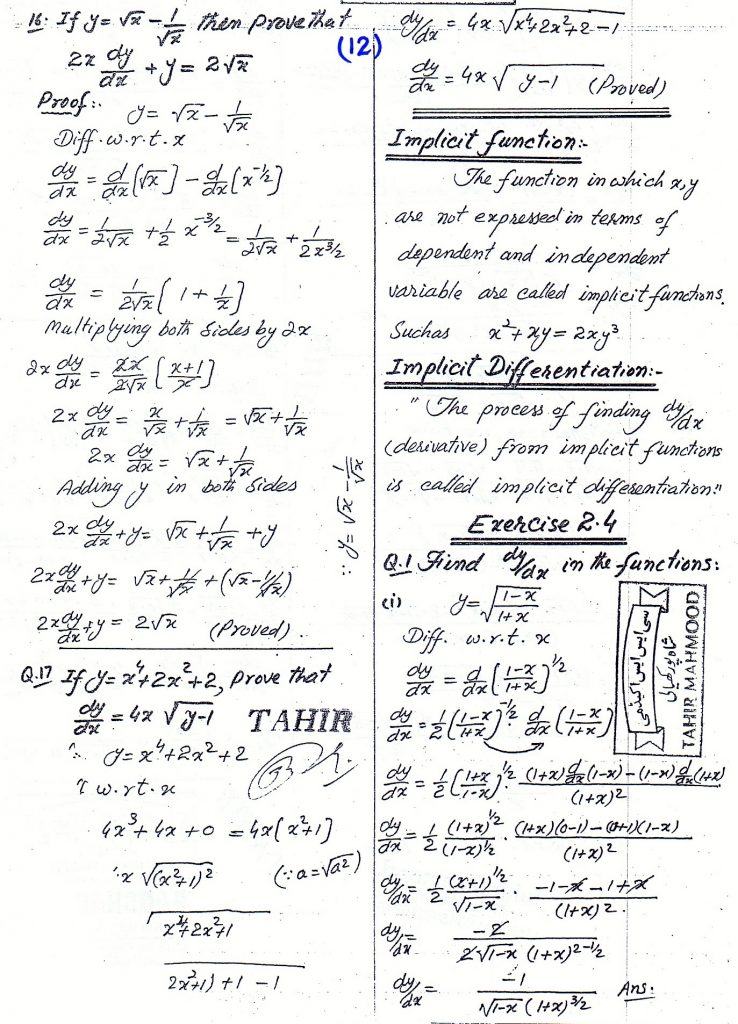 16. If y = √x − 1/√x then prove that
2x dy/dx + y = 2√x
(12)
Proof:-
y = √x − 1/√x
Diff. w.r.t. x
dy/dx = d/dx (√x) − d/dx (x^-1/2)
dy/dx = 1/2√x + 1/2 x^-3/2 = 1/2√x + 1/2x^3/2
dy/dx = 1/2√x ( 1 + 1/x )
Multiplying both sides by 2x
2x dy/dx = 2x/2√x ( x+1/x )
2x dy/dx = x/√x + 1/√x = √x + 1/√x
2x dy/dx = √x + 1/√x
Adding y in both sides
2x dy/dx + y = √x + 1/√x + y
∵ y = √x − 1/√x
2x dy/dx + y = √x + 1/√x + (√x − 1/√x)
2x dy/dx + y = 2√x (Proved).
Q.17 If y = x^4 + 2x^2 + 2, prove that
dy/dx = 4x √y-1
TAHIR
y = x^4 + 2x^2 + 2
w.r.t. x
4x^3 + 4x + 0 = 4x(x^2+1)
x √(x^2+1)^2 (∵ a = √a^2)
√x^4 + 2x^2 + 1
2x^2+1) + 1 − 1
dy/dx = 4x √x^4+2x^2+2−1
dy/dx = 4x √ y−1 (Proved)
Implicit function:-
The function in which x, y
are not expressed in terms of
dependent and independent
variable are called implicit functions.
Such as x^2 + xy = 2xy^3
Implicit Differentiation:-
" The process of finding dy/dx
(derivative) from implicit functions
is called implicit differentiation."
Exercise 2.4
Q.1 Find dy/dx in the functions:
(i) y = √1−x/1+x
Diff. w.r.t. x
dy/dx = d/dx (1−x/1+x)^1/2
dy/dx = 1/2 (1−x/1+x)^-1/2 d/dx (1−x/1+x)
TAHIR MAHMOOD
dy/dx = 1/2 (1+x/1−x)^1/2 . (1+x) d/dx (1−x) − (1−x) d/dx (1+x) / (1+x)^2
dy/dx = 1/2 (1+x)^1/2/(1−x)^1/2 . (1+x)(0−1) − (0+1)(1−x) / (1+x)^2
dy/dx = 1/2 (x+1)^1/2/√1−x . −1−x−1+x / (1+x)^2.
dy/dx = −2 / 2√1−x (1+x)^2−1/2
dy/dx = −1 / √1−x (1+x)^3/2 Ans: